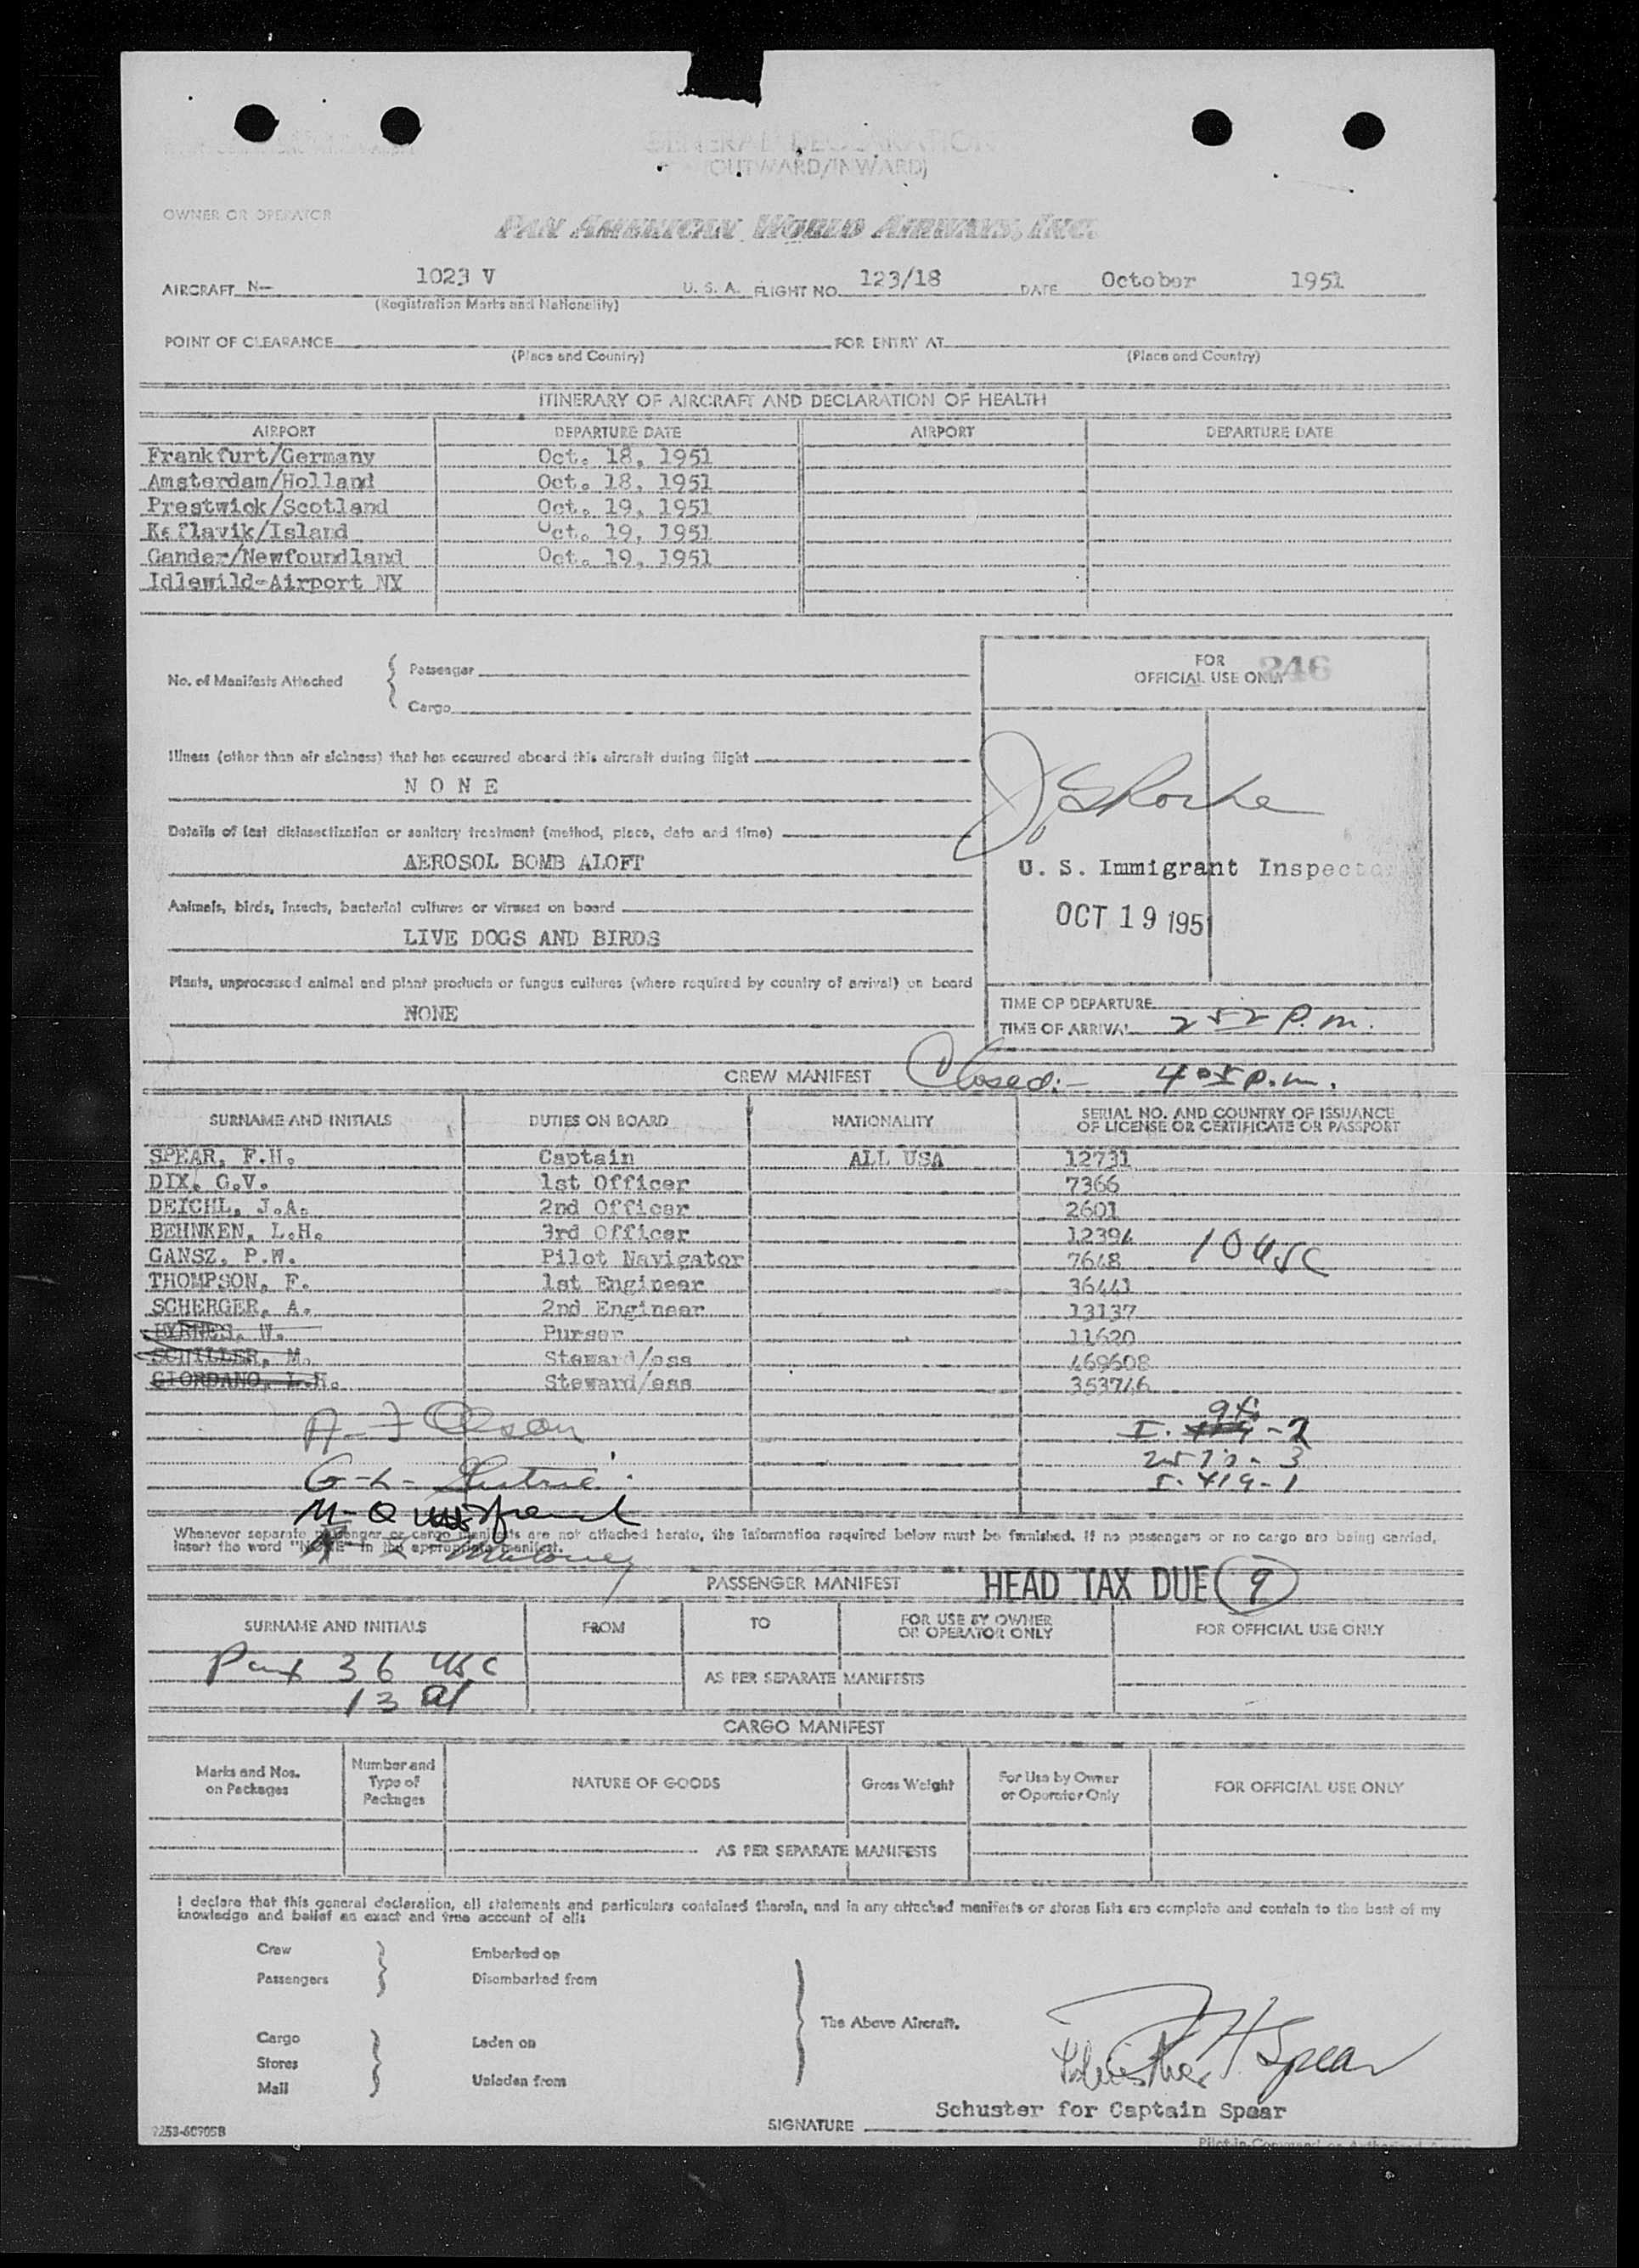 GENERAL DECLARATION
(OUTWARD/INWARD)
OWNER OR OPERATOR
PAN AMERICAN WORLD AIRWAYS, INC.
AIRCRAFT N- 1023 V U. S. A. FLIGHT NO. 123/18 DATE October 1951
(Registration Marks and Nationality)
POINT OF CLEARANCE FOR ENTRY AT
(Place and Country) (Place and Country)
ITINERARY OF AIRCRAFT AND DECLARATION OF HEALTH
AIRPORT DEPARTURE DATE AIRPORT DEPARTURE DATE
Frankfurt/Germany Oct. 18, 1951
Amsterdam/Holland Oct. 18, 1951
Prestwick/Scotland Oct. 19, 1951
Keflavik/Island Oct. 19, 1951
Gander/Newfoundland Oct. 19, 1951
Idlewild-Airport NY
No. of Manifests Attached
Passenger
Cargo
FOR
OFFICIAL USE ONLY 246
Illness (other than air sickness) that has occurred aboard this aircraft during flight
N O N E
Details of last disinsectization or sanitary treatment (method, place, date and time)
AEROSOL BOMB ALOFT
U. S. Immigrant Inspector
Animals, birds, insects, bacterial cultures or viruses on board
OCT 19 1951
LIVE DOGS AND BIRDS
Plants, unprocessed animal and plant products or fungus cultures (where required by country of arrival) on board
NONE
TIME OF DEPARTURE
TIME OF ARRIVAL 252 P.m.
CREW MANIFEST Closed:- 405 p.m.
SURNAME AND INITIALS DUTIES ON BOARD NATIONALITY SERIAL NO. AND COUNTRY OF ISSUANCE
OF LICENSE OR CERTIFICATE OR PASSPORT
SPEAR, F.H. Captain ALL USA 12731
DIX, G.V. 1st Officer 7366
DEICHL, J.A. 2nd Officer 2601
BEHNKEN, L.H. 3rd Officer 12394
GANSZ, P.W. Pilot Navigator 7648 10 USC
THOMPSON, F. 1st Engineer 36441
SCHERGER, A. 2nd Engineer 13137
BYRNES, W. Purser 11620
SCHILLER, M. Steward/ess 469608
GIORDANO, L.N. Steward/ess 353746
A-F Olson
G-L-
M-Q
Maloney
Whenever separate passenger or cargo manifests are not attached hereto, the information required below must be furnished. If no passengers or no cargo are being carried,
insert the word "NONE" in the appropriate manifest.
PASSENGER MANIFEST HEAD TAX DUE 9
SURNAME AND INITIALS FROM TO FOR USE BY OWNER
OR OPERATOR ONLY FOR OFFICIAL USE ONLY
Pax 36 USC
13 al
AS PER SEPARATE MANIFESTS
CARGO MANIFEST
Marks and Nos.
on Packages
Number and
Type of
Packages
NATURE OF GOODS
Gross Weight
For Use by Owner
or Operator Only
FOR OFFICIAL USE ONLY
AS PER SEPARATE MANIFESTS
I declare that this general declaration, all statements and particulars contained therein, and in any attached manifests or stores lists are complete and contain to the best of my
knowledge and belief an exact and true account of all:
Crew Embarked on
Passengers Disembarked from
The Above Aircraft.
Cargo Laden on
Stores
Mail Unladen from
F H Spear
Schuster for Captain Spear
SIGNATURE
7253-60705B